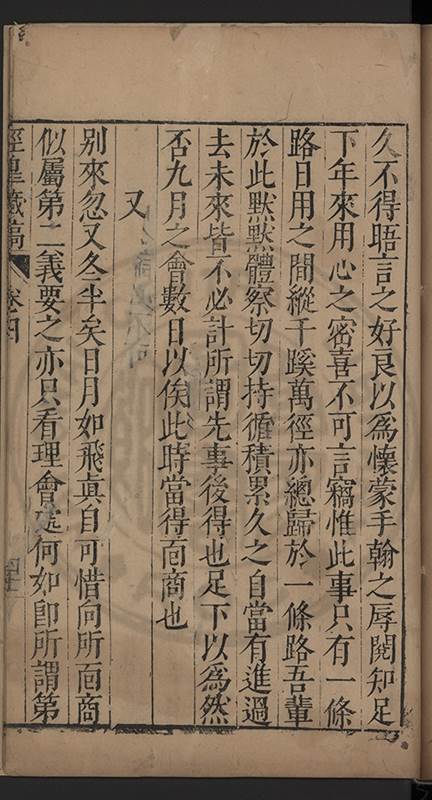 久不得晤言之好良以爲懷蒙手翰之辱閱知足
下年來用心之密喜不可言竊惟此事只有一條
路日用之間縱千蹊萬徑亦總歸於一條路吾輩
於此默默體察切切持循積累久之自當有進過
去未來皆不必計所謂先事後得也足下以爲然
否九月之會數日以俟此時當得面商也
又
別來忽又冬半矣日月如飛眞自可惜向所面商
似屬第二義要之亦只看理會處何如卽所謂第
藏稿
卷四